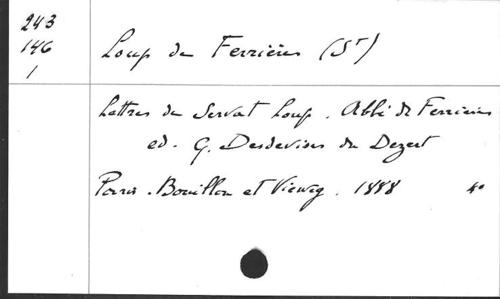 243
146
1
Loup de Ferrières (St)
Lettres de Servat Loup. Abbé de Ferrières
ed. G. Desdevises du Dezert
Paris. Bouillon et Vieweg. 1888 4°